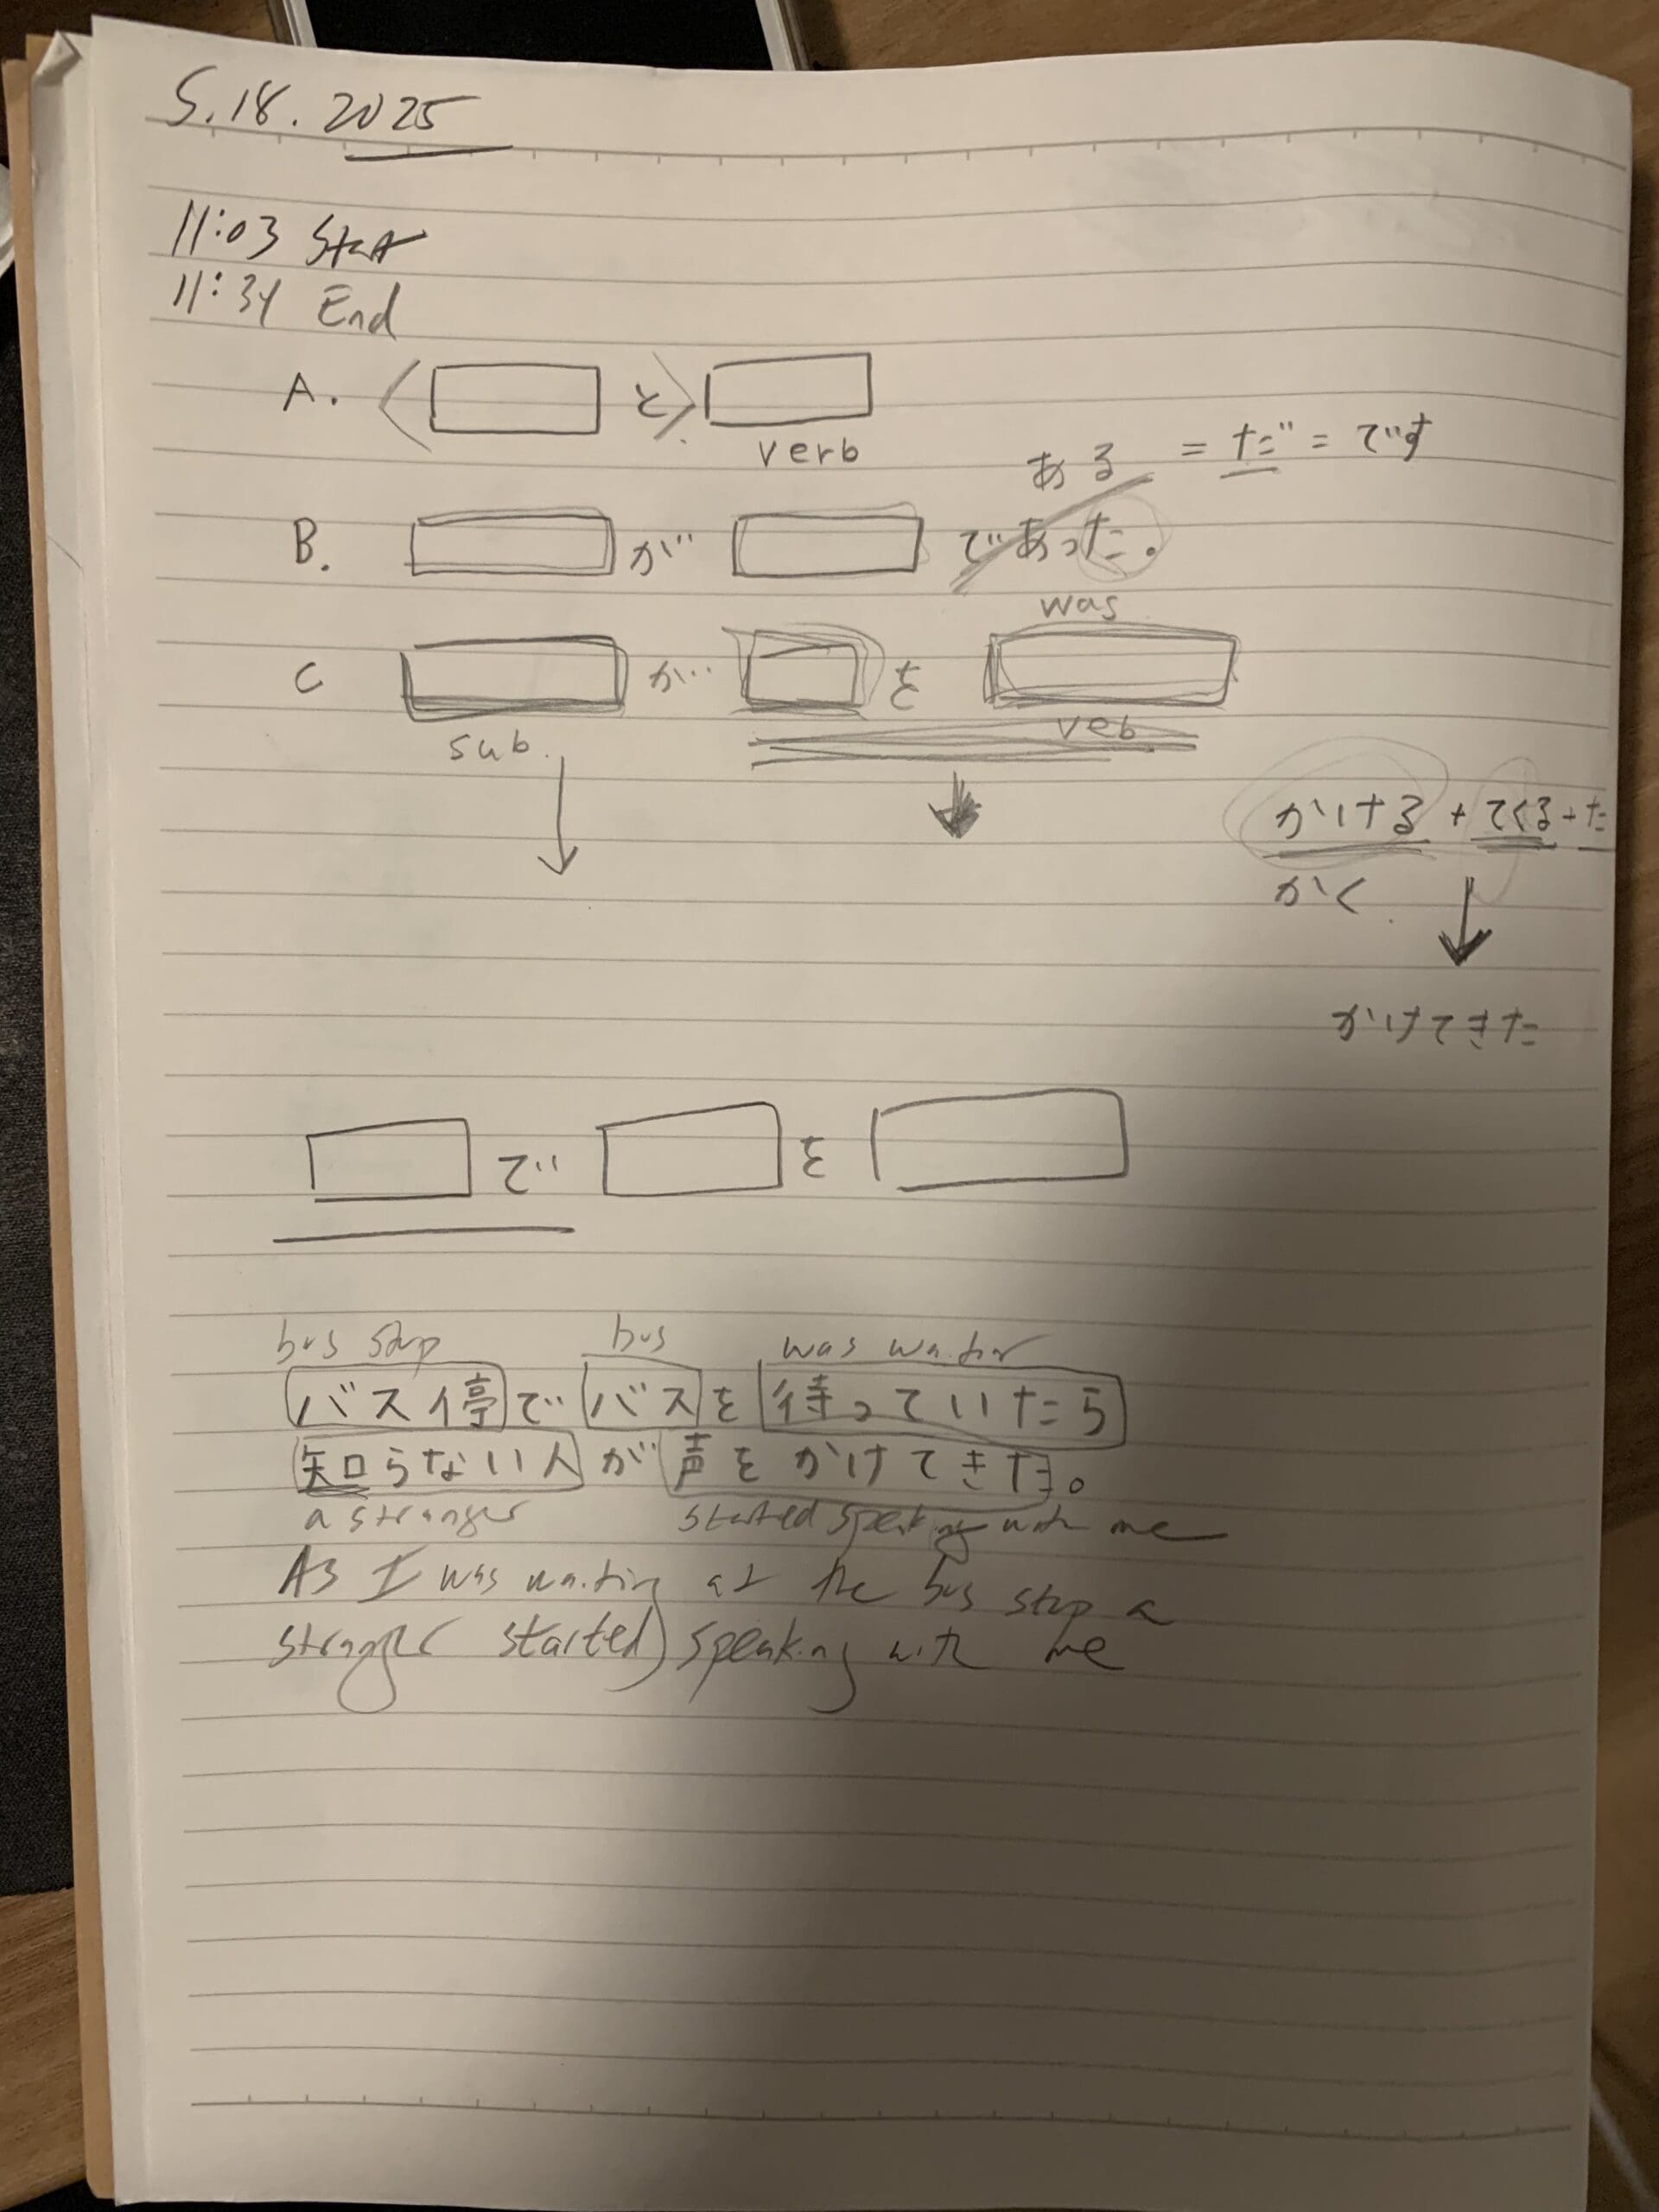 5.18.2025
11:03 Start
11:34 End
A. と verb
ある = だ = です
B. が であった。
was
C が を
sub. veb
かける + てくる + た
かく
かけてきた
で を
bus stop bus was waiting
バス停でバスを待っていたら
知らない人が声をかけてきた。
a stranger started speaking with me
As I was waiting at the bus stop a
stranger started speaking with me